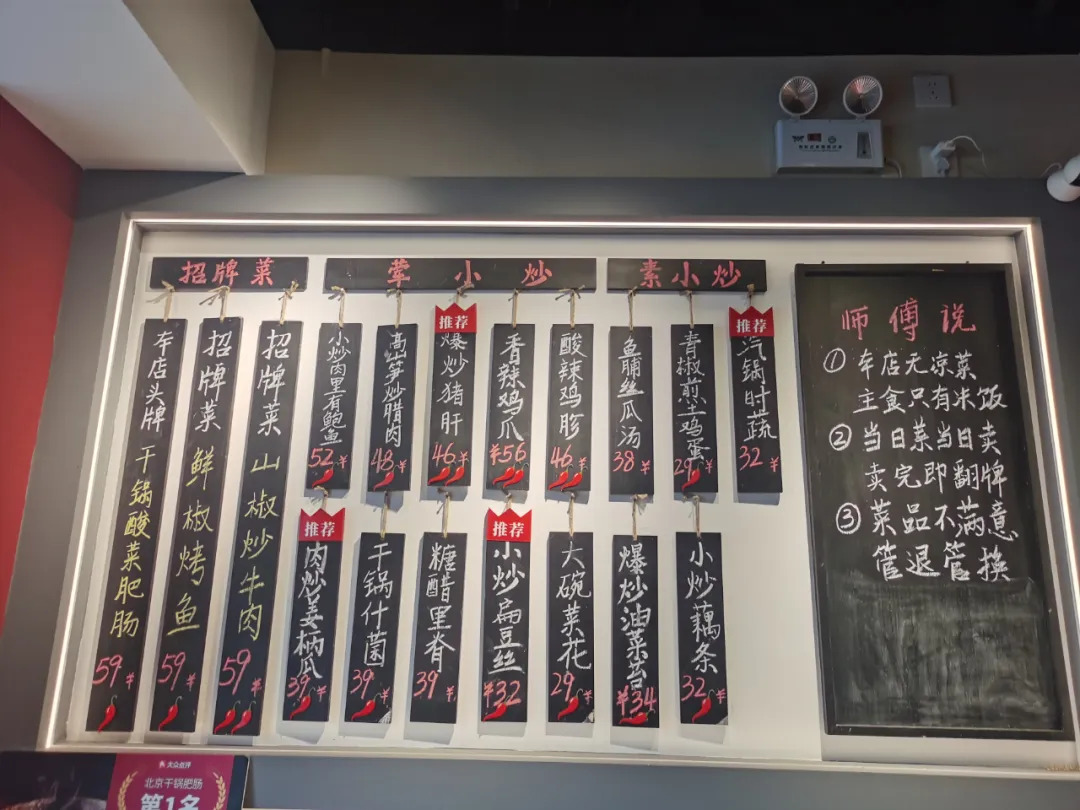 招牌菜
车店头牌 干锅酸菜肥肠 59¥
招牌菜 鲜椒烤鱼 59¥
招牌菜 山椒炒牛肉 59¥
荤小炒
小炒肉里有鲍鱼 52¥
高山笋炒腊肉 48¥
推荐
爆炒猪肝 46¥
香辣鸡爪 ¥56
酸辣鸡胗 46¥
素小炒
鱼脯丝瓜汤 38¥
青椒煎土鸡蛋 29¥
推荐
汽锅时蔬 32¥
推荐
肉炒姜柄瓜 39¥
干锅什菌 39¥
糖醋里脊 39¥
推荐
小炒扁豆丝 ¥32
大碗菜花 29¥
爆炒油菜苔 ¥34
小炒藕条 32¥
师傅说
①车店无凉菜
主食只有米饭
②当日菜当日卖
卖完即翻牌
③菜品不满意
管退管换
大众点评
北京干锅肥肠
第1名